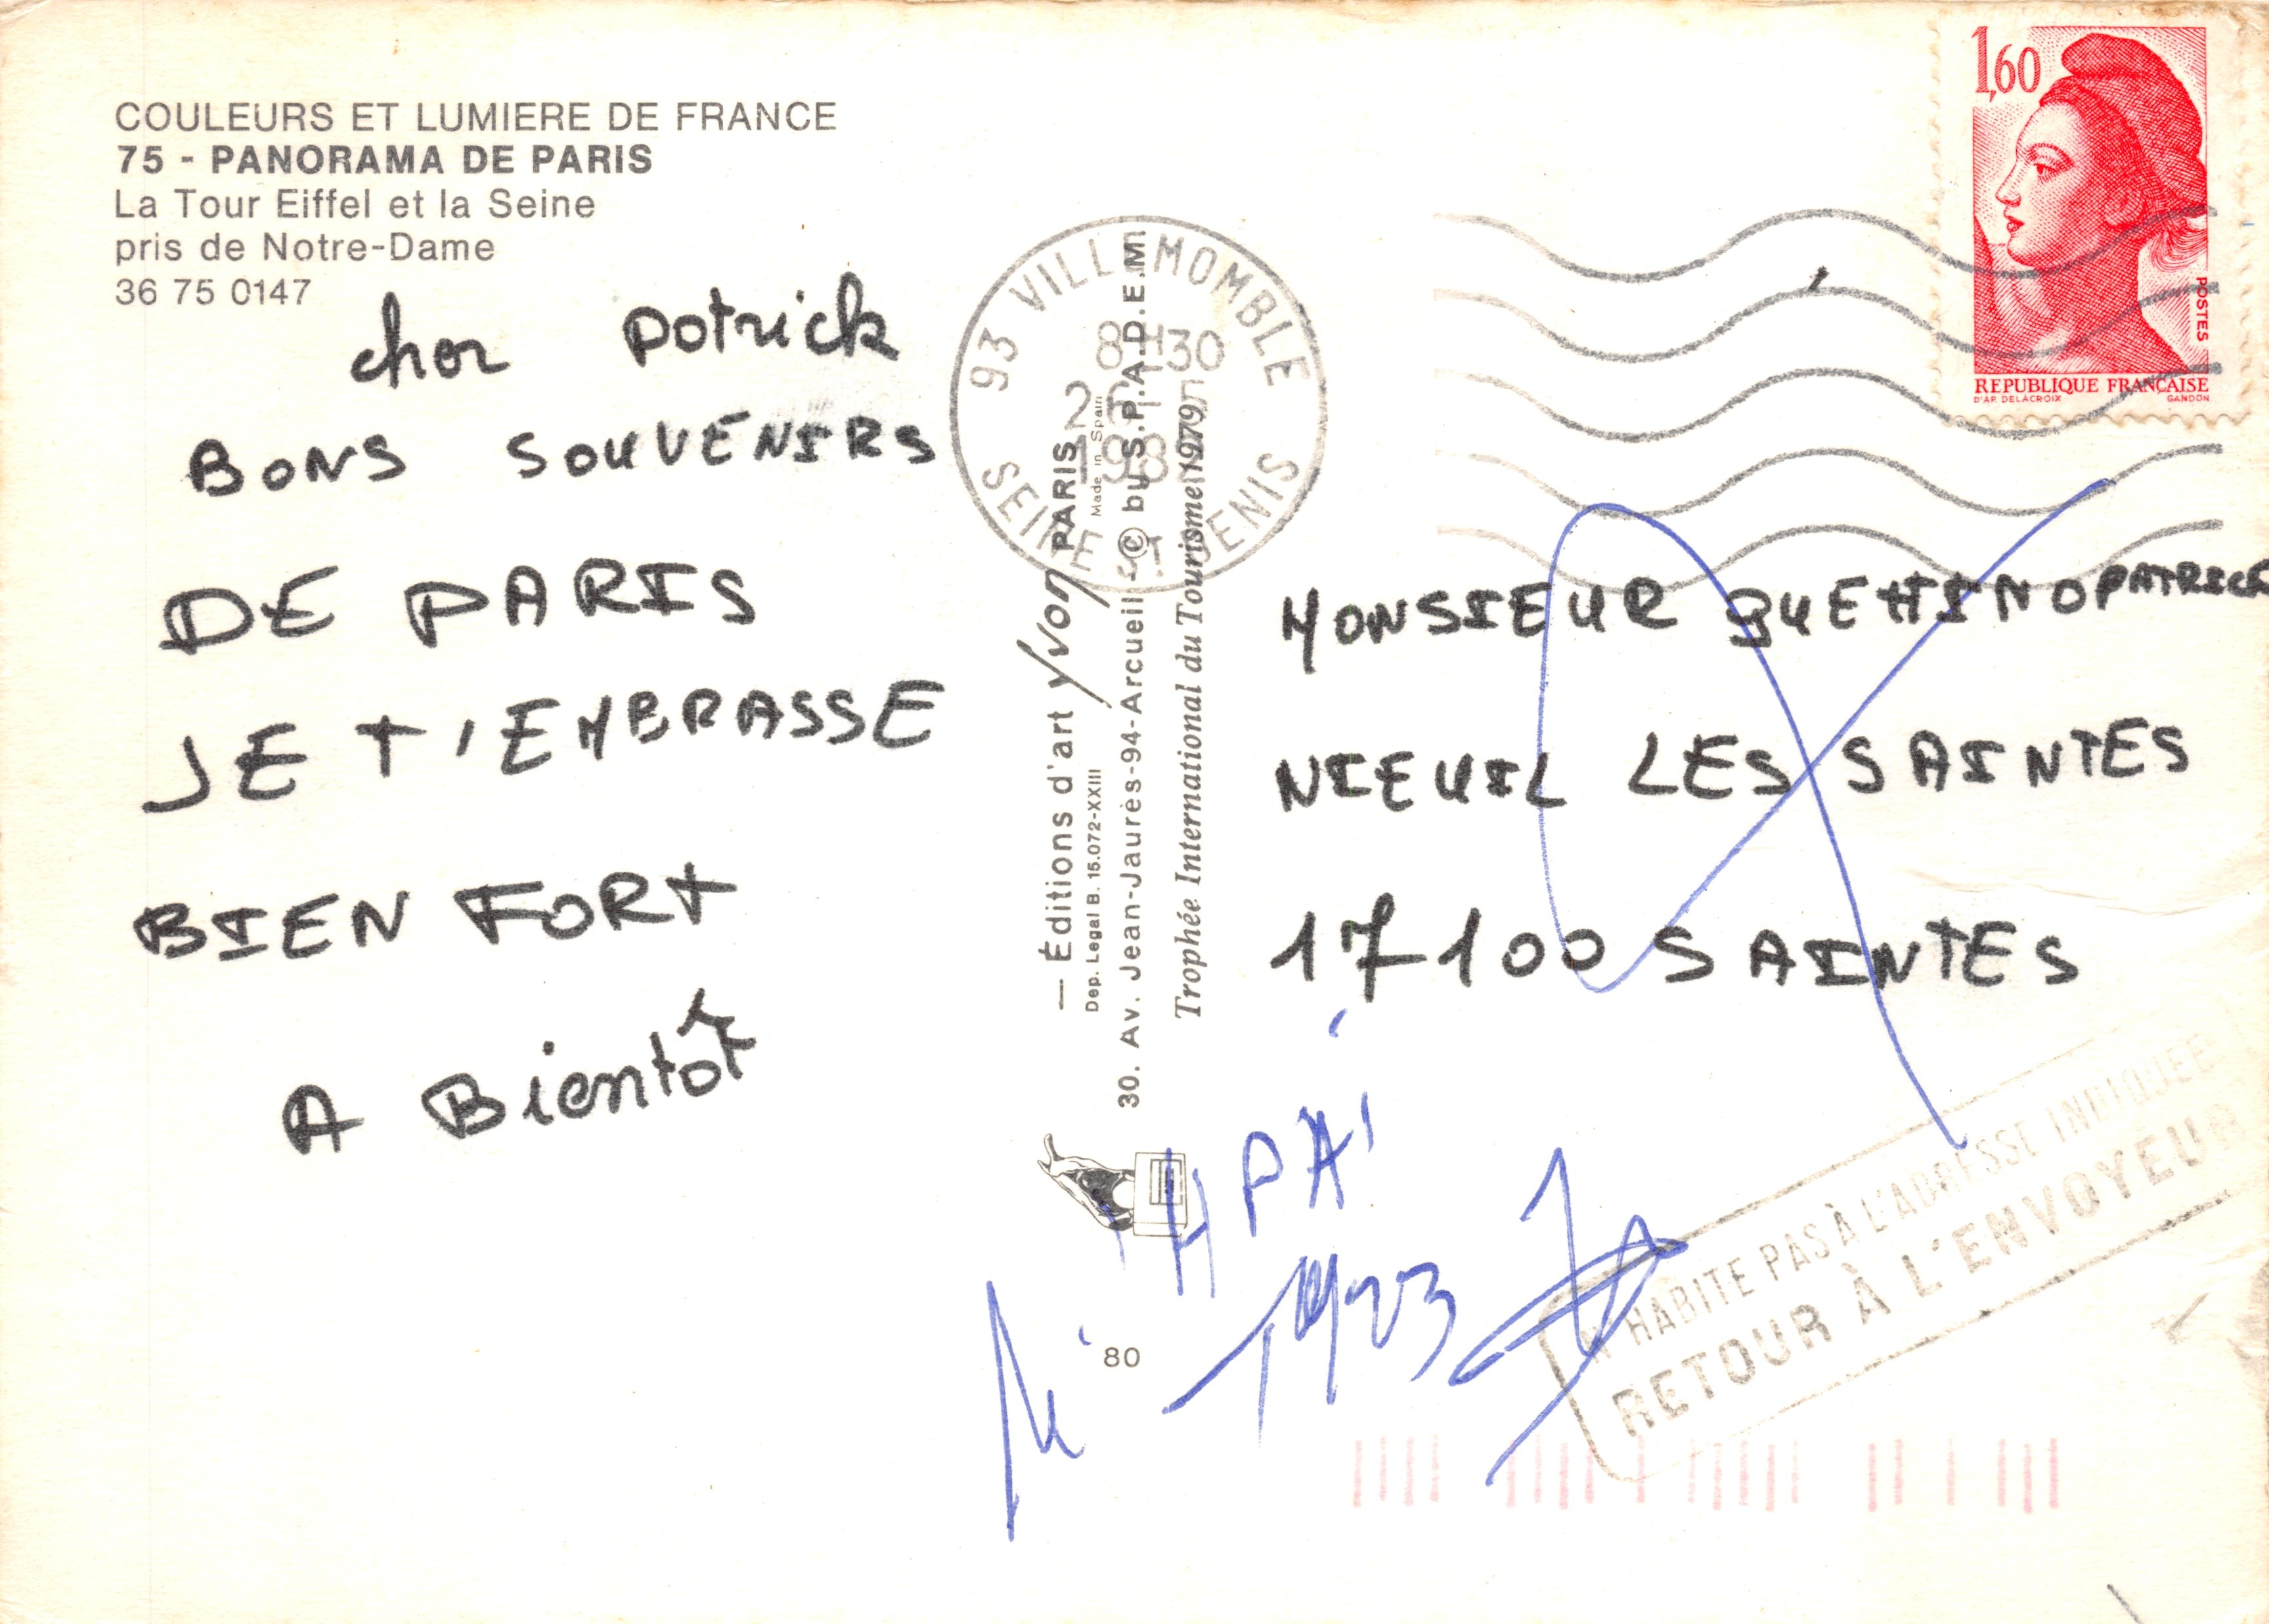 COULEURS ET LUMIERE DE FRANCE
75 - PANORAMA DE PARIS
La Tour Eiffel et la Seine
pris de Notre-Dame
36 75 0147
cher Patrick
BONS SOUVENIRS
DE PARIS
JE T'EMBRASSE
BIEN FORT
A Bientôt
— Éditions d'art Yvon PARIS
Dep. Legal B. 15.072-XXIII
Made in Spain
30. Av. Jean-Jaurès-94-Arcueil-© by S.P.A.D.E.M.
Trophée International du Tourisme 1979
80
93 VILLEMOMBLE
8H30
SEINE ST DENIS
1,60
POSTES
REPUBLIQUE FRANÇAISE
D'AP. DELACROIX GANDON
MONSIEUR PATRICK
NIEUIL LES SAINTES
17100 SAINTES
N'HABITE PAS À L'ADRESSE INDIQUÉE
RETOUR À L'ENVOYEUR